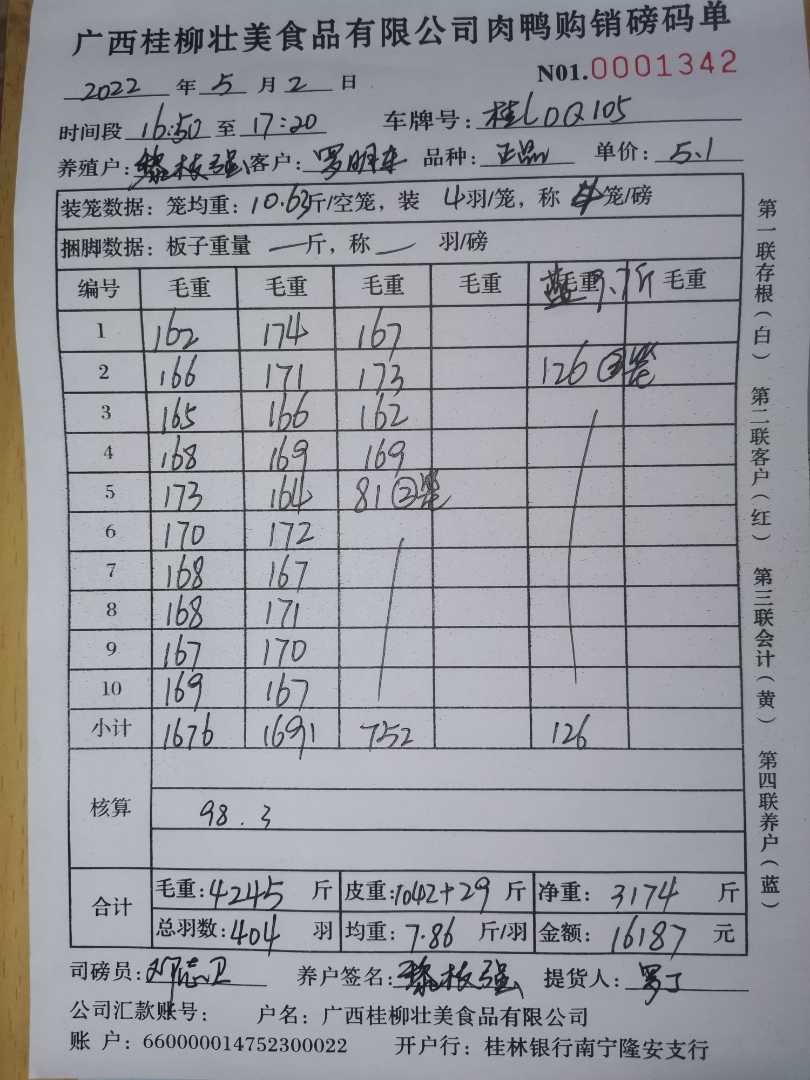 广西桂柳壮美食品有限公司肉鸭购销磅码单
2022 年 5 月 2 日 N01.0001342
时间段 16:50 至 17:20 车牌号: 桂L0Q105
养殖户: 强 客户: 罗明 品种: 正品 单价: 5.1
装笼数据: 笼均重: 10.63斤/空笼, 装 4羽/笼, 称 4笼/磅
捆脚数据: 板子重量 一斤, 称 一 羽/磅
编号 毛重 毛重 毛重 毛重 毛重 蓝9.7斤 毛重
1 162 174 167
2 166 171 173 126 ③笼
3 165 166 162
4 168 169 169
5 173 164 81②笼
6 170 172
7 168 167
8 168 171
9 167 170
10 169 167
小计 1676 1691 752 126
核算 98.3
合计 毛重:4245 斤 皮重:1042+29 斤 净重: 3174 斤
总羽数:404 羽 均重: 7.86 斤/羽 金额: 16187 元
司磅员: 志卫 养户签名: 强 提货人: 罗丁
公司汇款账号: 户名: 广西桂柳壮美食品有限公司
账 户: 660000014752300022 开户行: 桂林银行南宁隆安支行
第一联存根(白) 第二联客户(红) 第三联会计(黄) 第四联养户(蓝)